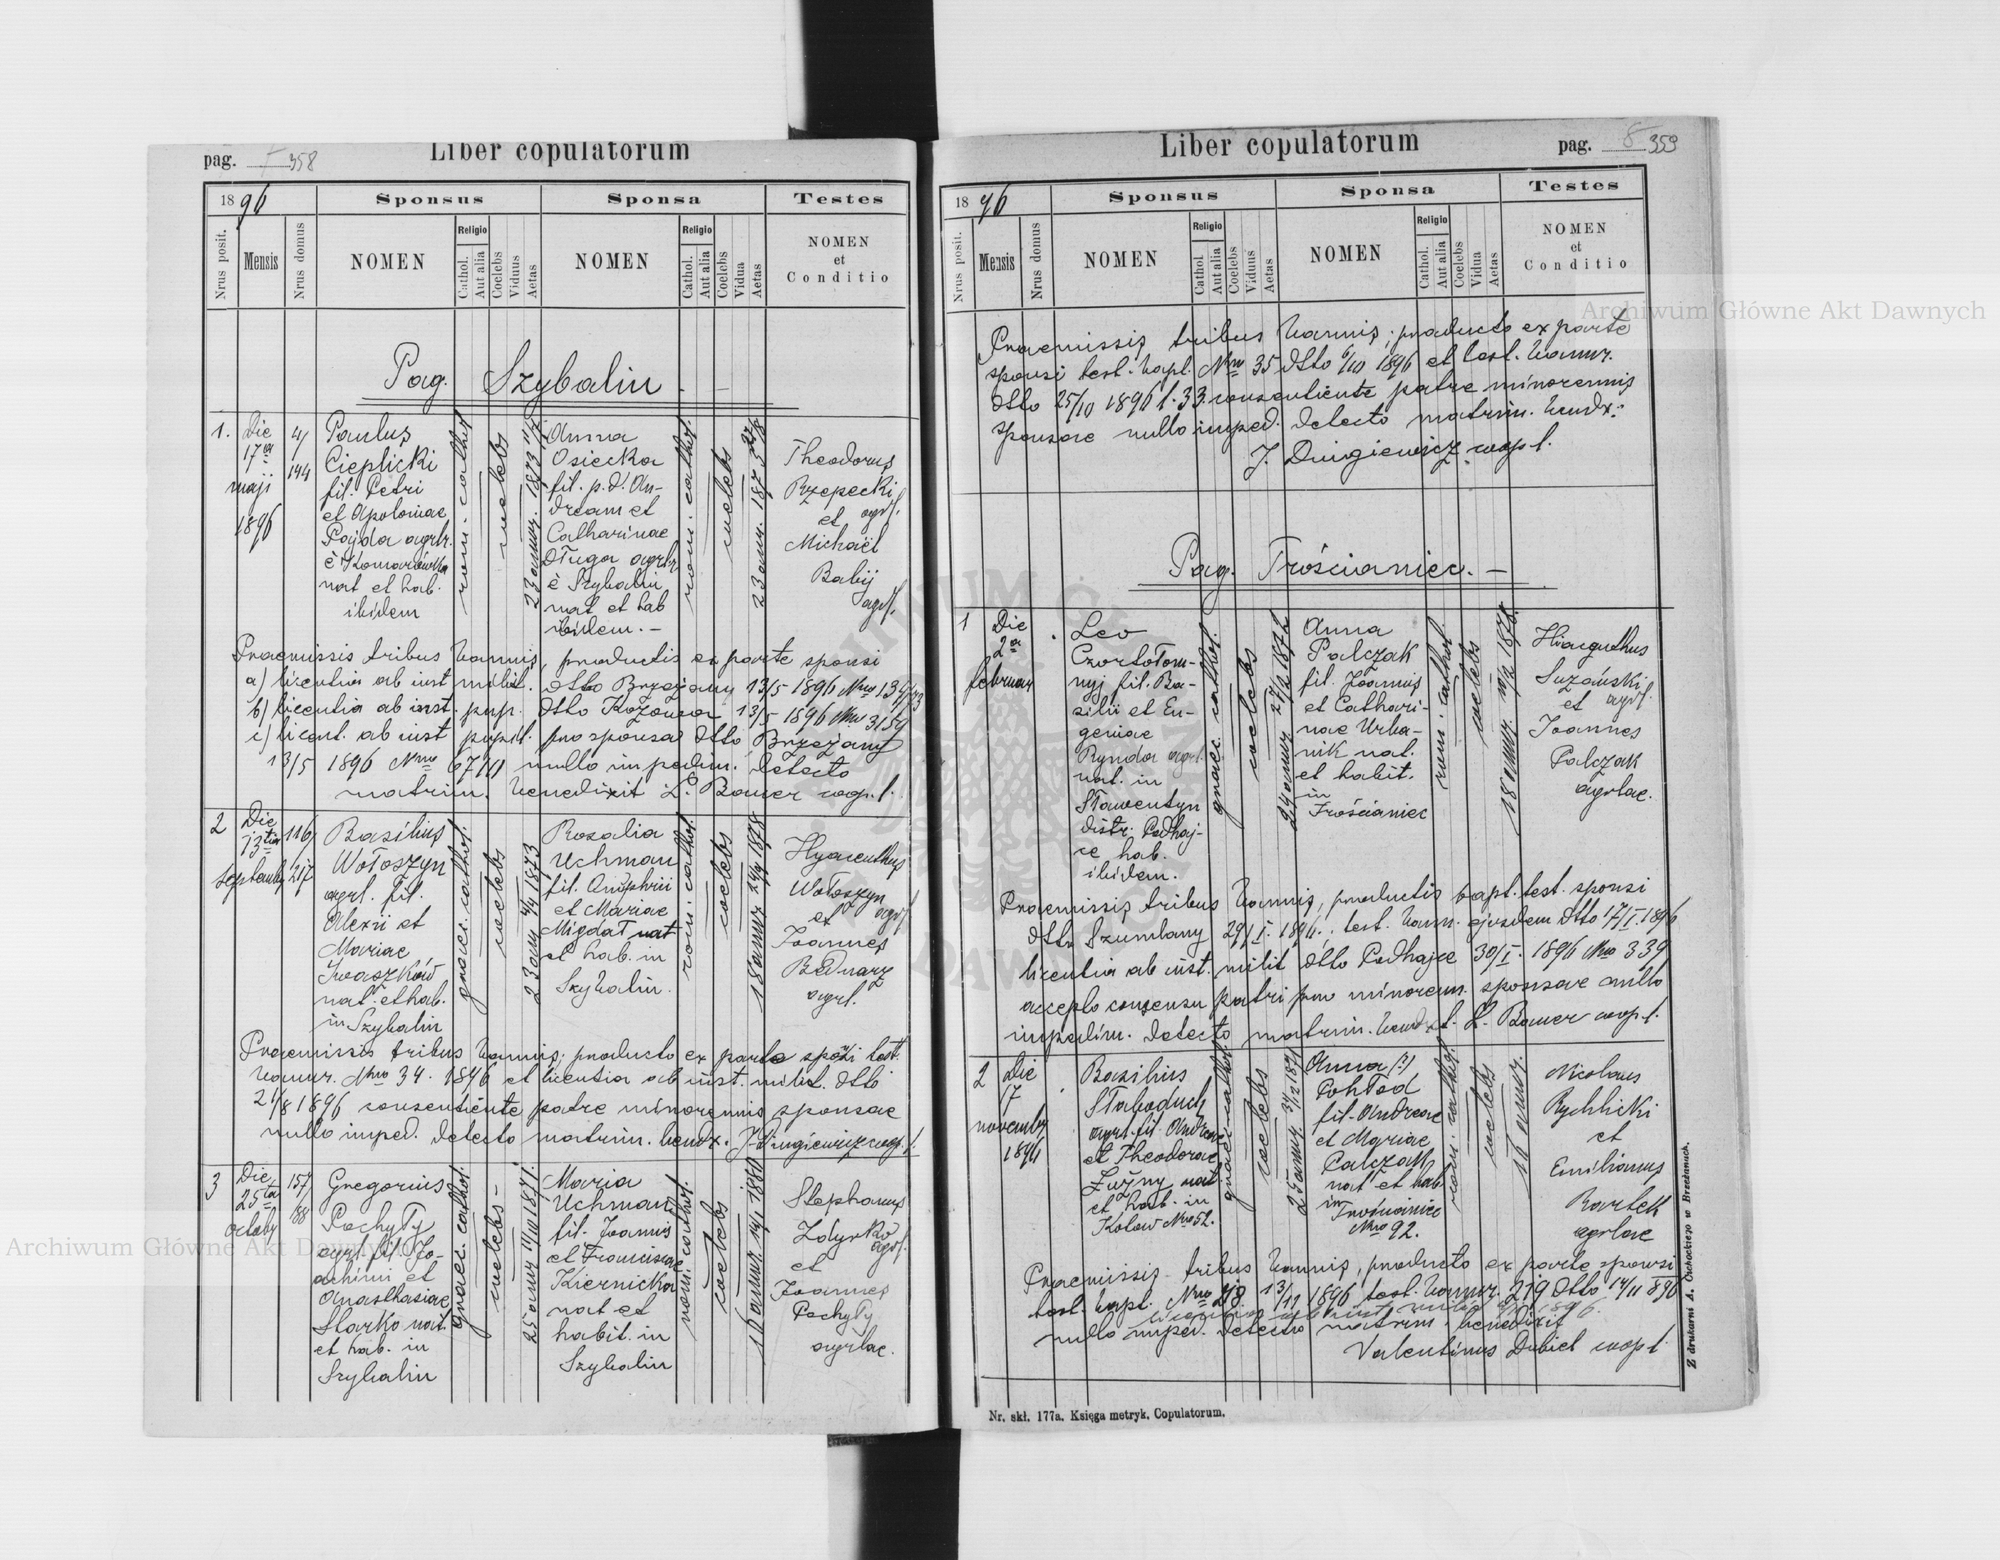 pag. 358
Liber copulatorum
1896
Sponsus
Sponsa
Testes
Nrus posit.
Mensis
Nrus domus
NOMEN
Religio
Cathol.
Aut alia
Coelebs
Viduus
Aetas
NOMEN
Religio
Cathol.
Aut alia
Coelebs
Vidua
Aetas
NOMEN
et
Conditio
Pag. Szybalin
1.
Die
17ma
maji
1896
4/
144
Paulus
Cieplicki
fil. Petri
et Apoloniae
Pajda agrlr.
è Komarówka
nat et hab.
ibidem
rom. cathol.
coelebs
23 annor. 1873
Anna
Osiecka
fil. p. d. An-
dream et
Catharinae
Długa agrlr
è Szybalin
nat et hab
ibidem. —
rom. cathol.
coelebs
23 annor. 187
Theodorus
Rzepecki
agrl.
et
Michaël
Babij
agrl.
Praemissis tribus bannis, productis ex parte sponsi
a) licentia ab inst milit. dtto Brzeżany 13/5 1896 Nro
b) licentia ab inst. pup. dtto Kozowa 13/5 1896 Nro 3154
c) licent. ab inst pupil. pro sponsa dtto Brzeżany
13/5 1896 Nro nullo impedim. detecto
matrim. benedixit L. Bauer coop. l.
2
Die
13tia
Septemb
116/
217
Basilius
Wołoszyn
agrl. fil.
Alexii et
Mariae
Iwaszków
nat. et hab.
in Szybalin
graeci. cathol.
coelebs
23 ann 1873
Rozalia
Uchman
fil. Onuphrii
et Mariae
Migdał nat
et hab. in
Szybalin.
rom. cathol.
coelebs
18 annor 1878
Hyacinthus
Wołoszyn
agrl.
et
Joannes
Bednarz
agrl.
Praemissis tribus bannis; producto ex parte sponsi test.
bannor. Nro 34. 1896 et licentia ab inst. milit. dtto
21/8 1896 consentiente patre minorennis sponsae
nullo imped. detecto matrim. bendx. J. Dungiewicz coop. l.
3
Die
25ta
octobr
157
188
Gregorius
Pochyły
agrl. fil. Jo-
achimi et
Anasthasiae
Starko nat.
et hab. in
Szybalin
graec. cathol.
coelebs -
25 annor 11/10 1871.
Maria
Uchman
fil. Joannis
et Franciscae
Kiernicka
nat et
habit. in
Szybalin
rom. cathol.
coelebs
16 annor. 1880
Stephanus
Zdyrko
agrl.
et
Joannes
Pochyły
agrlae.
pag. 359
Liber copulatorum
1896
Sponsus
Sponsa
Testes
Nrus posit.
Mensis
Nrus domus
NOMEN
Religio
Cathol.
Aut alia
Coelebs
Viduus
Aetas
NOMEN
Religio
Cathol.
Aut alia
Coelebs
Vidua
Aetas
NOMEN
et
Conditio
Praemissis tribus bannis; producto ex parte
sponsi test. bapt. Nro 35 dtto 6/10 1896 et test. bannor.
dtto 25/10 1896 l. 33. consentiente patre minorennis
sponsae nullo imped. detecto matrim. bendx:
J. Dungiewicz coop. l.
Pag. Trościaniec. —
1
Die
2a
februar
Leo
Czortołom-
nyj fil. Ba-
silii et Eu-
geniae
Rynda agrl.
nat. in
Sławentyn
distr. Podhaj-
ce hab.
ibidem.
graec. cathol.
coelebs
24 annor 27/2 1872
Anna
Palczak
fil. Joannis
et Cathari-
nae Urba-
nik nat.
et habit.
in
Trościaniec
rom. cathol.
coelebs
18 annor. 1878.
Hiacynthus
Suzański
agrl.
et
Joannes
Palczak
agrlae.
Praemissis tribus bannis, productis bapt. test. sponsi
dtto Szumlany 29/I. 1896.; test. bann. ejusdem dtto 17/I. 1896
licentia ab inst. milit dtto Podhajce 30/I. 1896 Nro 339
accepto consensu patri pro minorenn. sponsae nullo
impedim. detecto matrim. bendxt. L. Bauer coop. l.
2
Die
17
novembr
1896
Basilius
Słaboduch
agrl. fil. Andreae
et Theodorae
Luźny nat
et hab. in
Kotow Nro 52.
graec. cathol.
coelebs
25 annor. 31/12 1871
Anna (?)
Pohłod
fil. Andreae
et Mariae
Palczak
nat et hab
in Trościaniec
Nro 92.
rom. cathol.
coelebs
annor.
Nicolaus
Rychlicki
et
Emilianus
Bartek
agrlae
Praemissis tribus bannis, producto ex parte sponsi
test. bapt. Nro 218 13/11 1896 test. bannor. 219 dtto 14/11 896
nullo imped. detecto matrim. benedixit
Valentinus Dubiel coop l.
Nr. skł. 177a. Księga metryk. Copulatorum.
Z drukarni A. Cichockiego w Brzeżanach.
Archiwum Główne Akt Dawnych
Archiwum Główne Akt Dawnych